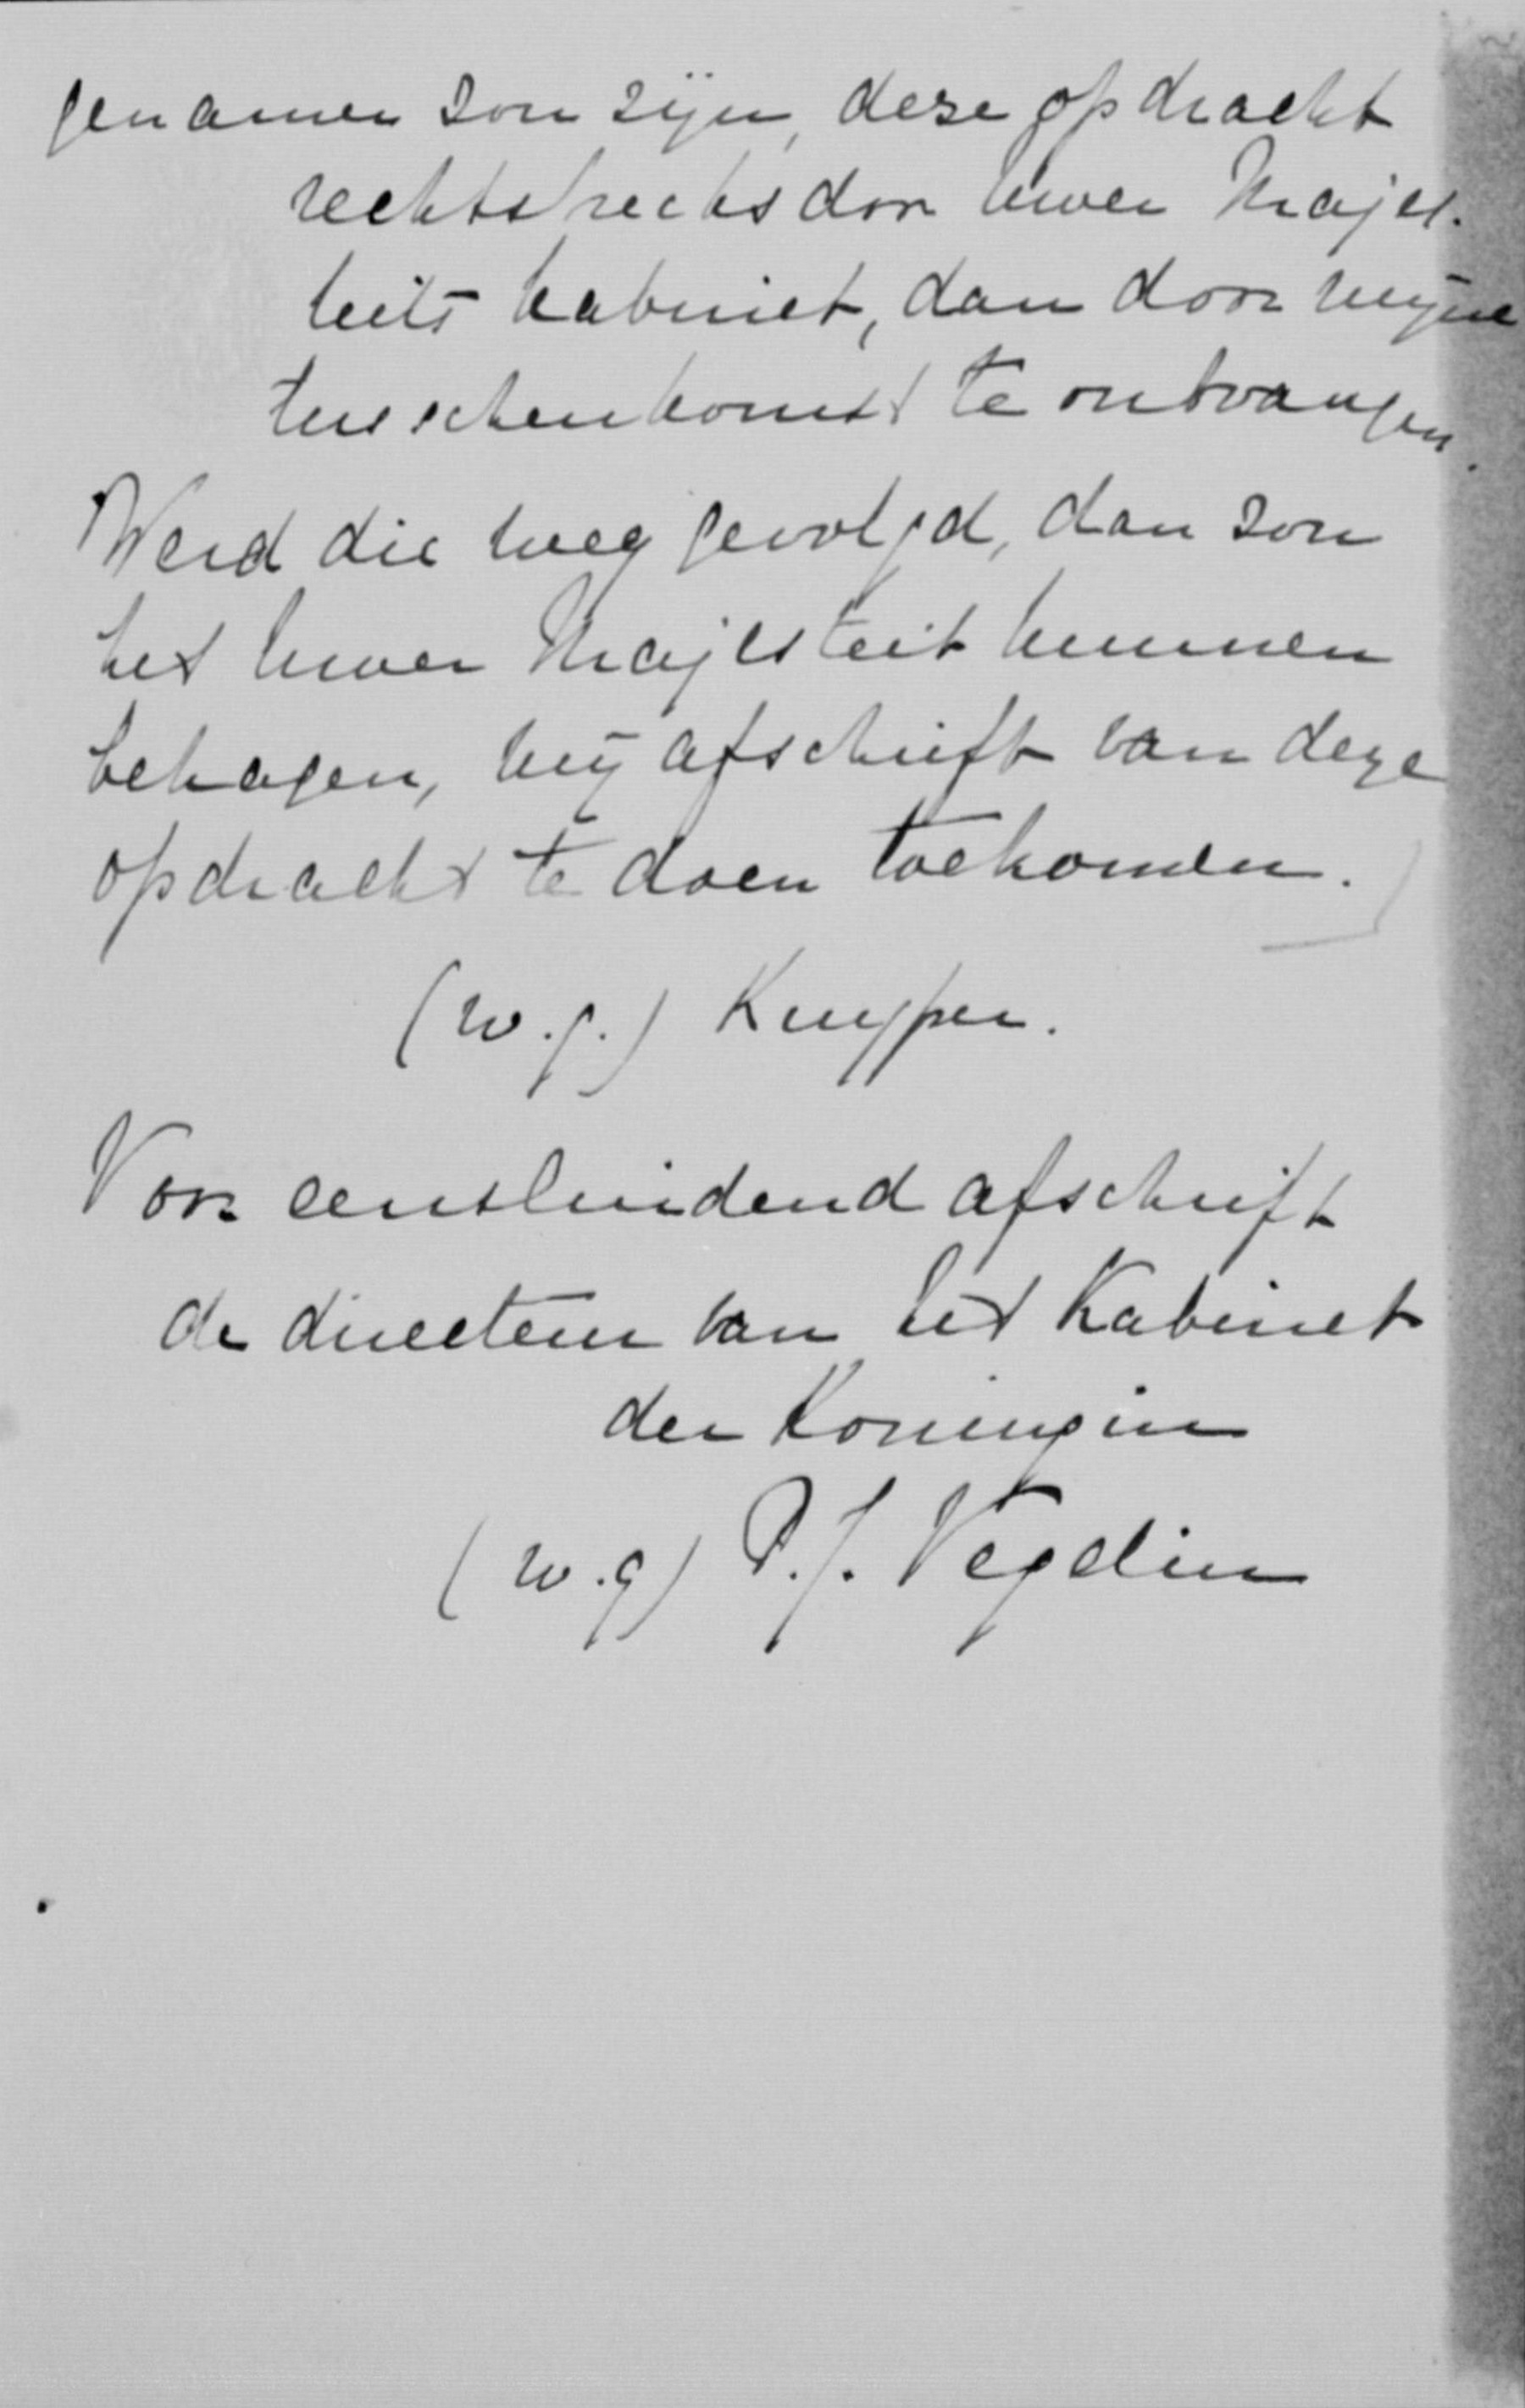 genamer zou zijn, deze opdracht
rechtstreeks door Uwer Majes-
teits kabinet, dan door mijne
tusschenkomst te ontvangen.
Werd die weg gevolgd, dan zou
het Uwer Majesteit kunnen
behagen, mij afschrift van deze
opdracht te doen toekomen.
(w.g.) Kuyper.
Voor eensluidend afschrift
de directeur van het Kabinet
der Koningin
(w.g) P.J. Vegelin